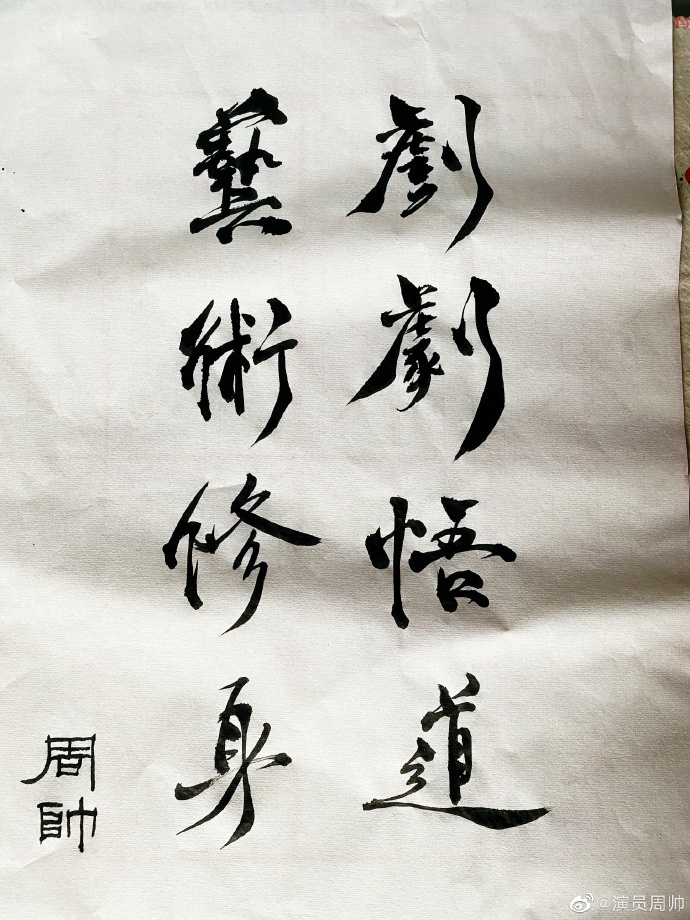 戲劇悟道
藝術修身
周帥
@演员周帅